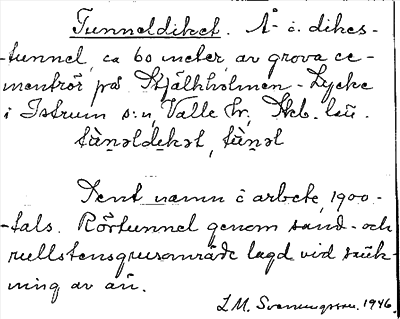 Tunneldiket. Å- l. dikes-
-tunnel, ca 60 meter av grova ce-
mentrör på Stjälkholmen - Lycke
i Istrum s:n, Valle hr, Skb. län.
tùnəldekət, tùnəl
Sent namn i arbete 1900-
-tals. Rörtunnel genom sand- och
rullstensgrusområde lagd vid sänk-
ning av ån.
L.M. Svenungsson. 1946.